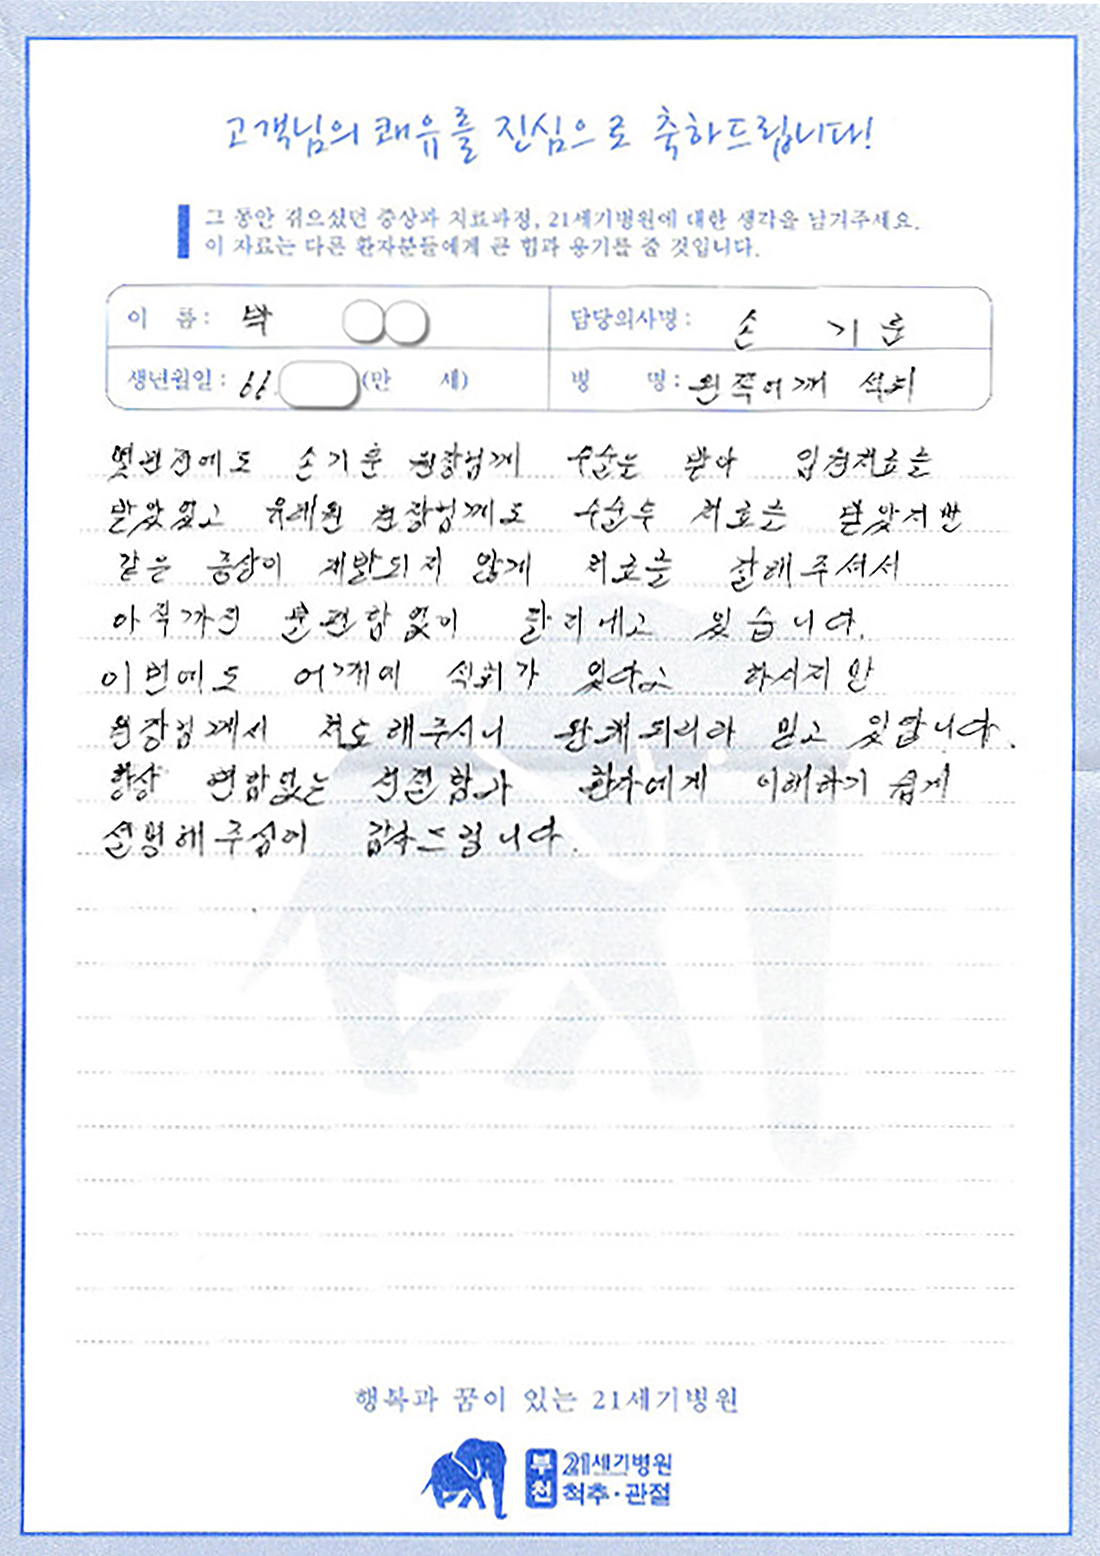 고객님의 쾌유를 진심으로 축하드립니다!
그 동안 겪으셨던 증상과 치료과정, 21세기병원에 대한 생각을 남겨주세요.
이 자료는 다른 환자분들에게 큰 힘과 용기를 줄 것입니다.
이 름 : 박
담당의사명 : 손 기 훈
생년월일 : 66. (만 세)
병 명 : 왼쪽어깨 석회
몇년전에도 손기훈 원장님께 수술을 받아 입원치료를
받았었고 유해원 원장님께도 수술후 치료를 받았지만
같은 증상이 재발되지 않게 치료를 잘해주셔서
아직까지 불편함없이 잘 지내고 있습니다.
이번에도 어깨에 석회가 있다고 하시지만
원장님께서 치료해주시니 완쾌되리라 믿고 있답니다.
항상 변함없는 친절함과 환자에게 이해하기 쉽게
설명해주심에 감사드립니다.
행복과 꿈이 있는 21세기병원
부천 21세기병원
척추·관절